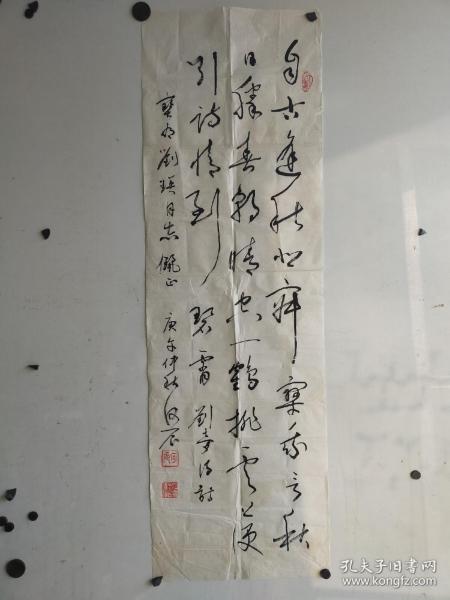 自古逢秋悲寂寥我言秋
日胜春朝晴空一鹤排云上便
引诗情到碧霄 刘禹锡诗
刘瑛同志儷正 庚午仲秋
孔夫子旧书网
www.kongfz.com